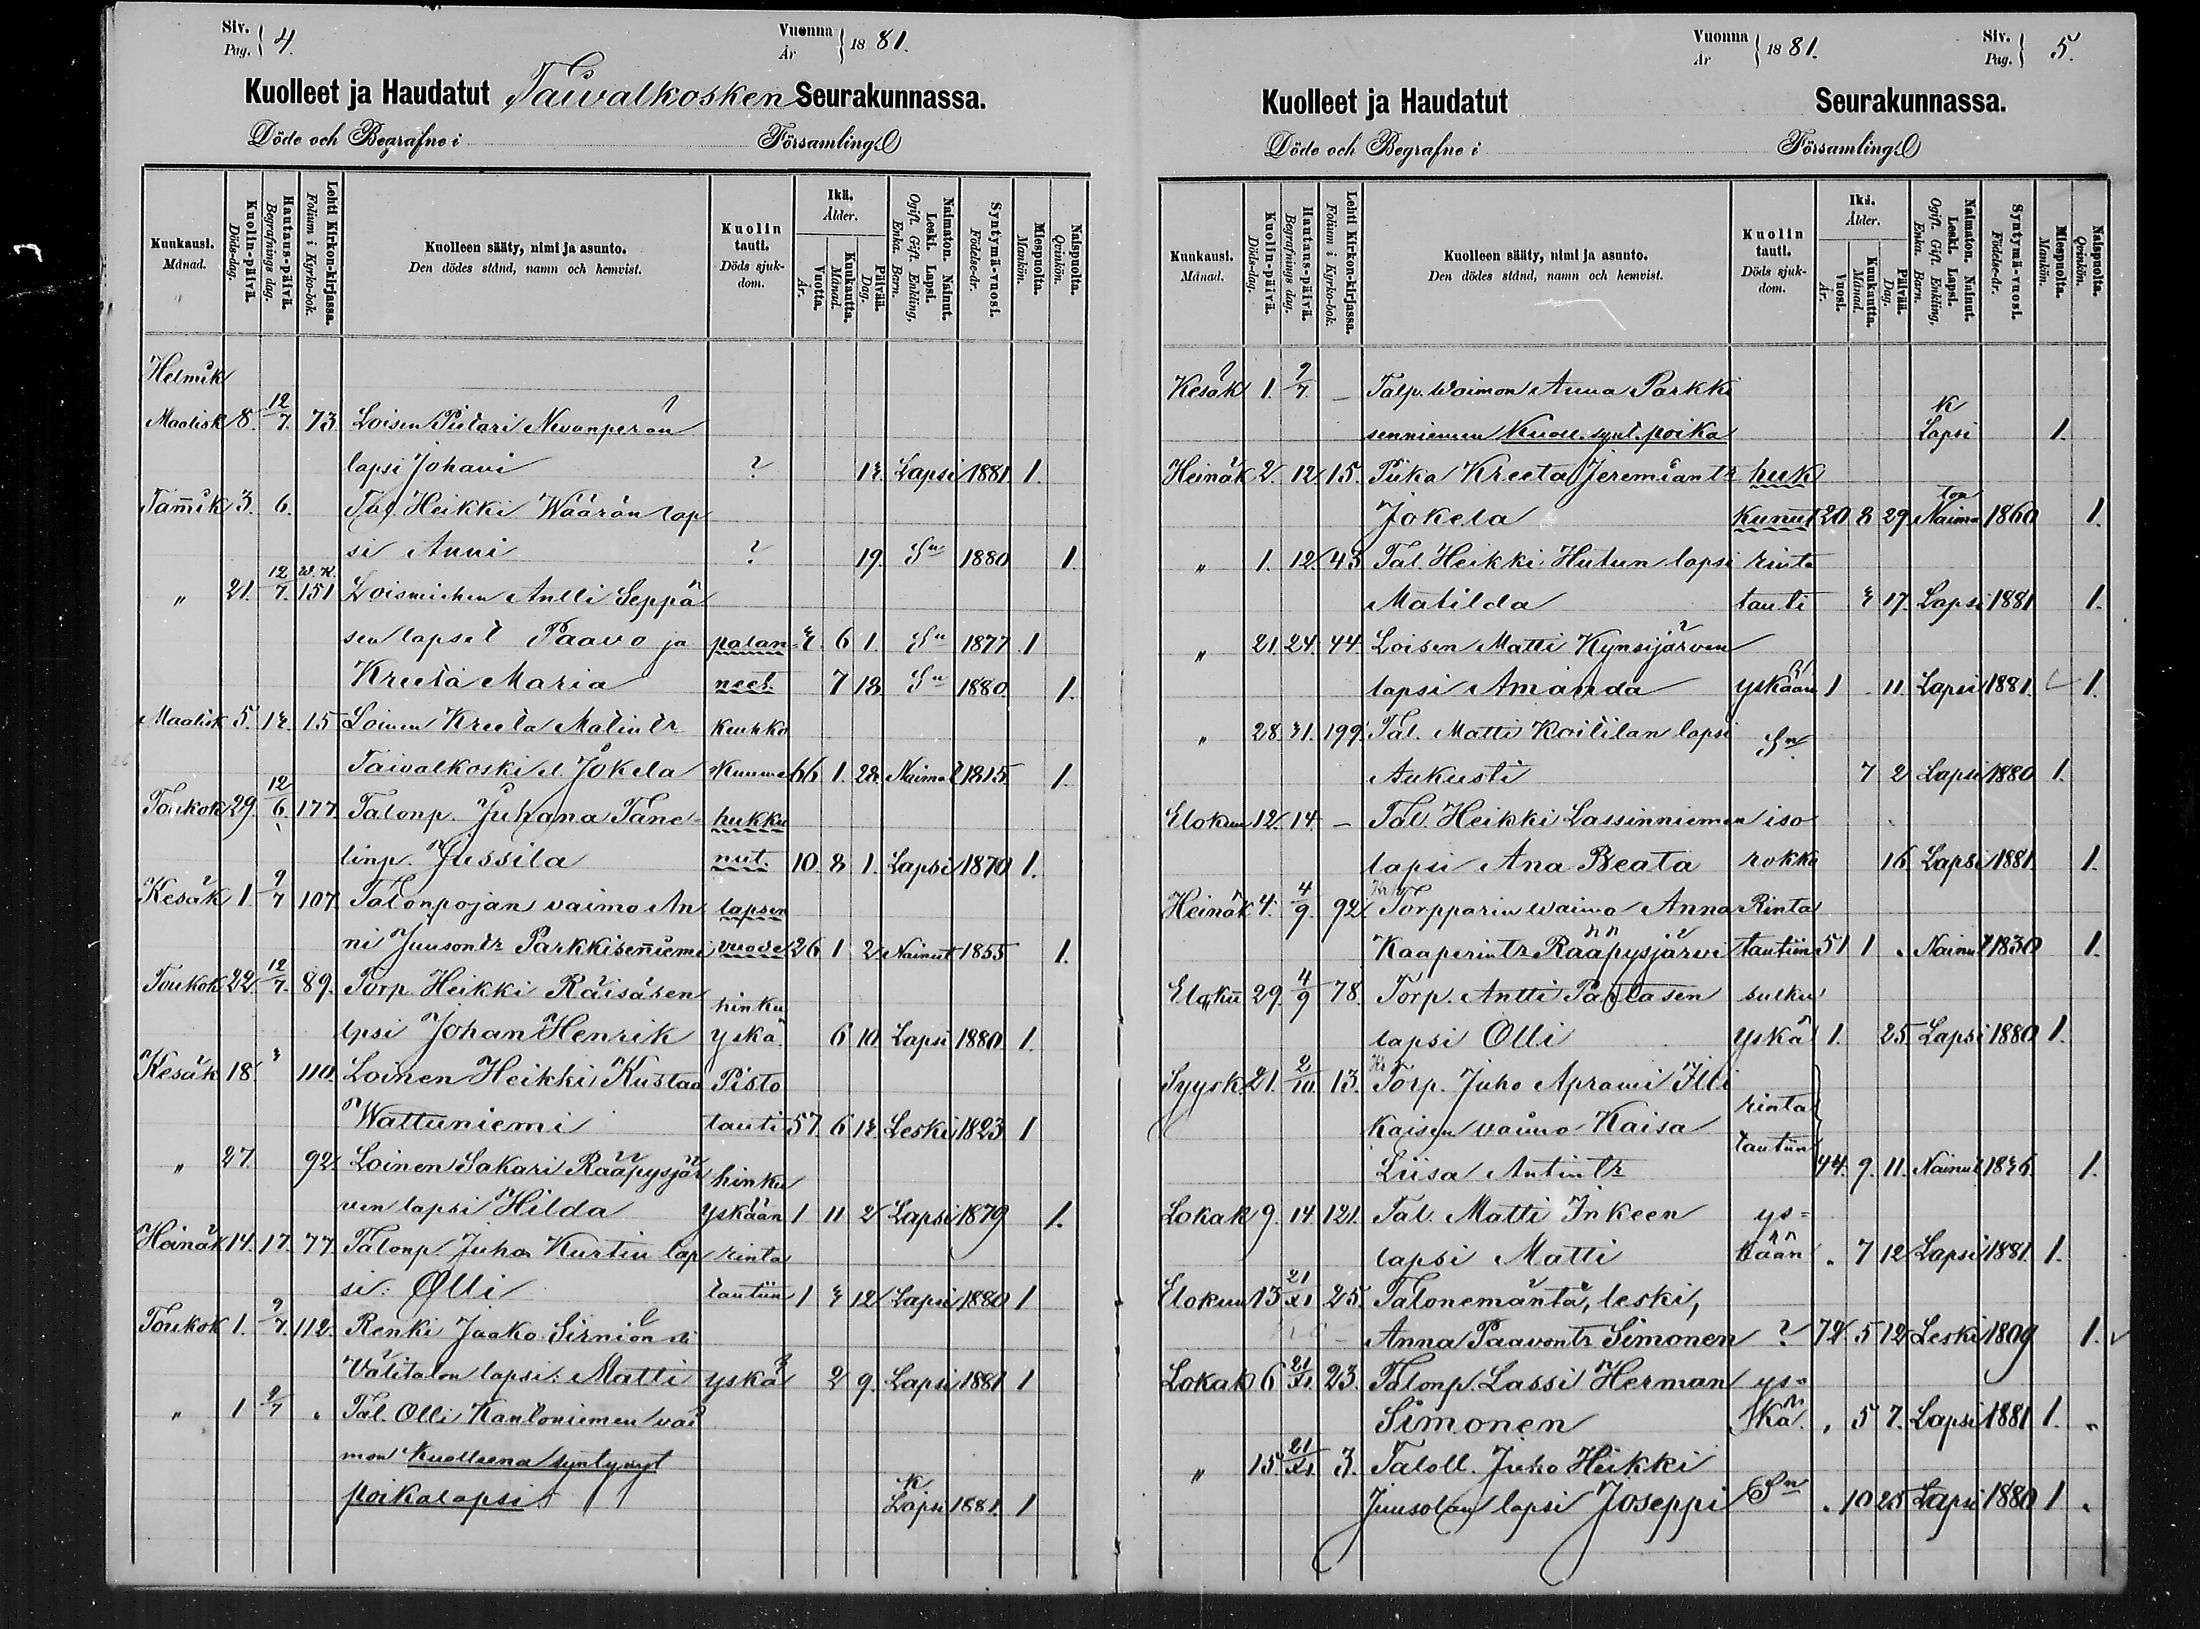 Siv. Pag. 4. Vuonna År 1881.
Kuolleet ja Haudatut Taivalkosken Seurakunnassa.
Döde och Begrafne i Församling.
Kuukausi. Månad.
Kuolin-päivä. Döds-dag.
Hautaus-päivä. Begrafnings dag.
Lehti Kirkon-kirjassa. Folium i Kyrko-bok.
Kuolleen sääty, nimi ja asunto. Den dödes stånd, namn och hemvist.
Kuolin tauti. Döds sjukdom.
Ikä. Ålder.
Vuotta. År.
Kuukautta. Månad.
Päivää. Dag.
Naimaton. Nainut. Leski. Lapsi. Ogift. Gift. Enkling, Enka. Barn.
Syntymä-vuosi. Födelse-år.
Miespuolta. Mankön.
Naispuolta. Qvinkön.
Helmik
Maalisk 8. 12/7. 73 Loisen Pietari Nevanperän
lapsi Johani ? 13 Lapsi 1881 1.
Tamik 3. 6. Tal. Heikki Wäärän lap
si Anni ? 19. Sn 1880 1.
" 21. 12/7. W.K. 151 Loismiehen Antti Seppä
sen lapset Paavo ja palan 3 6 1. Sn 1877 1
Kreeta Maria neet. 7 18 Sn 1880 1.
Maalisk 5. 13. 15 Loinen Kreeta Matintr keuhko
Taivalkoski el. Jokela kuume 66 1. 22 Naimat 1815 1.
Toukok 29. 12/6. 177 Talonp. Juhana Tane hukku
linp. Jussila nut. 10. 8 1. Lapsi 1870 1.
Kesäk 1. 9/7 107. Talonpojan vaimo An lapsen
ni Juusontr Parkkisenniemi vuode 26 1 2 Nainut 1855 1.
Toukok 22. 12/7. 89. Torp. Heikki Räisäsen hinku
lpsi Johan Henrik yskä 6 10 Lapsi 1880. 1.
Kesäk 18. 3 110. Loinen Heikki Kustaa Pisto
Wattuniemi tauti 57 6 13 Leski 1823 1
" 27. 92 Loinen Sakari Rääpysjär hinku
ven lapsi Hilda yskään 1 11 2 Lapsi 1879 1.
Heinäk 14. 17. 77 Talonp. Juho Kurtin lap rinta
si: Olli tautiin 1 3 12 Lapsi 1880 1
Toukok 1. 9/7. 112. Renki Jaako Sirniön el
Välitalon lapsi: Matti yskä 2 9. Lapsi 1881 1
" 1 9/7 " Tal. Olli Kantoniemen vai
mon Kuolleena syntynyt
poikalapsi k Lapsi 1881. 1
Vuonna År 1881. Siv. Pag. 5.
Kuolleet ja Haudatut Seurakunnassa.
Döde och Begrafne i Församling.
Kuukausi. Månad.
Kuolin-päivä. Döds-dag.
Hautaus-päivä. Begrafnings dag.
Lehti Kirkon-kirjassa. Folium i Kyrko-bok.
Kuolleen sääty, nimi ja asunto. Den dödes stånd, namn och hemvist.
Kuolin tauti. Döds sjukdom.
Ikä. Ålder.
Vuosi. År.
Kuukautta. Månad.
Päivää. Dag.
Naimaton. Nainut. Leski. Lapsi. Ogift. Gift. Enkling, Enka. Barn.
Syntymä-vuosi. Födelse-år.
Miespuolta. Mankön.
Naispuolta. Qvinkön.
Kesäk 1. 9/7. — Talp. Waimon Anna Parkki
senniemen Kuoll. synt. poika k Lapsi 1.
Heinäk 2. 12 15. Piika Kreeta Jeremiantr huk
Jokela kunut 20 8 29. Naima ton 1860 1.
" 1. 12. 43 Tal Heikki Hutun lapsi rinta
Matilda tauti 3 17. Lapsi 1881 1.
" 21. 24. 44. Loisen Matti Kynsijärven
lapsi Amanda yskään 1 11. Lapsi 1881. 1.
" 28. 31. 199. Tal. Matti Koitilan lapsi Sn
Aukusti 7 2 Lapsi 1880 1.
Elokuu 12. 14. — Tal. Heikki Lassinniemen iso
lapsi Ana Beata rokko 16 Lapsi 1881. 1.
Heinäk 4. 4/9. 92 Torpparin waimo Anna Rinta
Kaaperintr Rääpysjärvi tautiin 51 1 " Nainut 1830 1.
Elokü 29. 4/9 78. Torp. Antti Partasen sulku
lapsi Olli yskä 1. 25. Lapsi 1880 1.
Syysk. 21. 2/10. 13. Torp. Juho Aprami Illi rinta
kaisen vaimo Kaisa tautiin
Liisa Antintr 44. 9. 11. Nainut 1836. 1.
Lokak 9. 14. 121. Tal. Matti Inkeen ys=
lapsi Matti kään " 7 12 Lapsi 1881 1.
Elokuu 13 21/XI 25. Talonemäntä, leski,
Anna Paavontr Simonen ? 72 5 12 Leski 1809 1.
Lokak 6 21/XI. 23. Talonp. Lassi Herman ys=
Simonen kä. " 5 7. Lapsi 1881 1. "
" 15. 21/XI. 3. Taloll. Juho Heikki
Juusolan lapsi Joseppi Sn " 10 25 Lapsi 1880 1 "